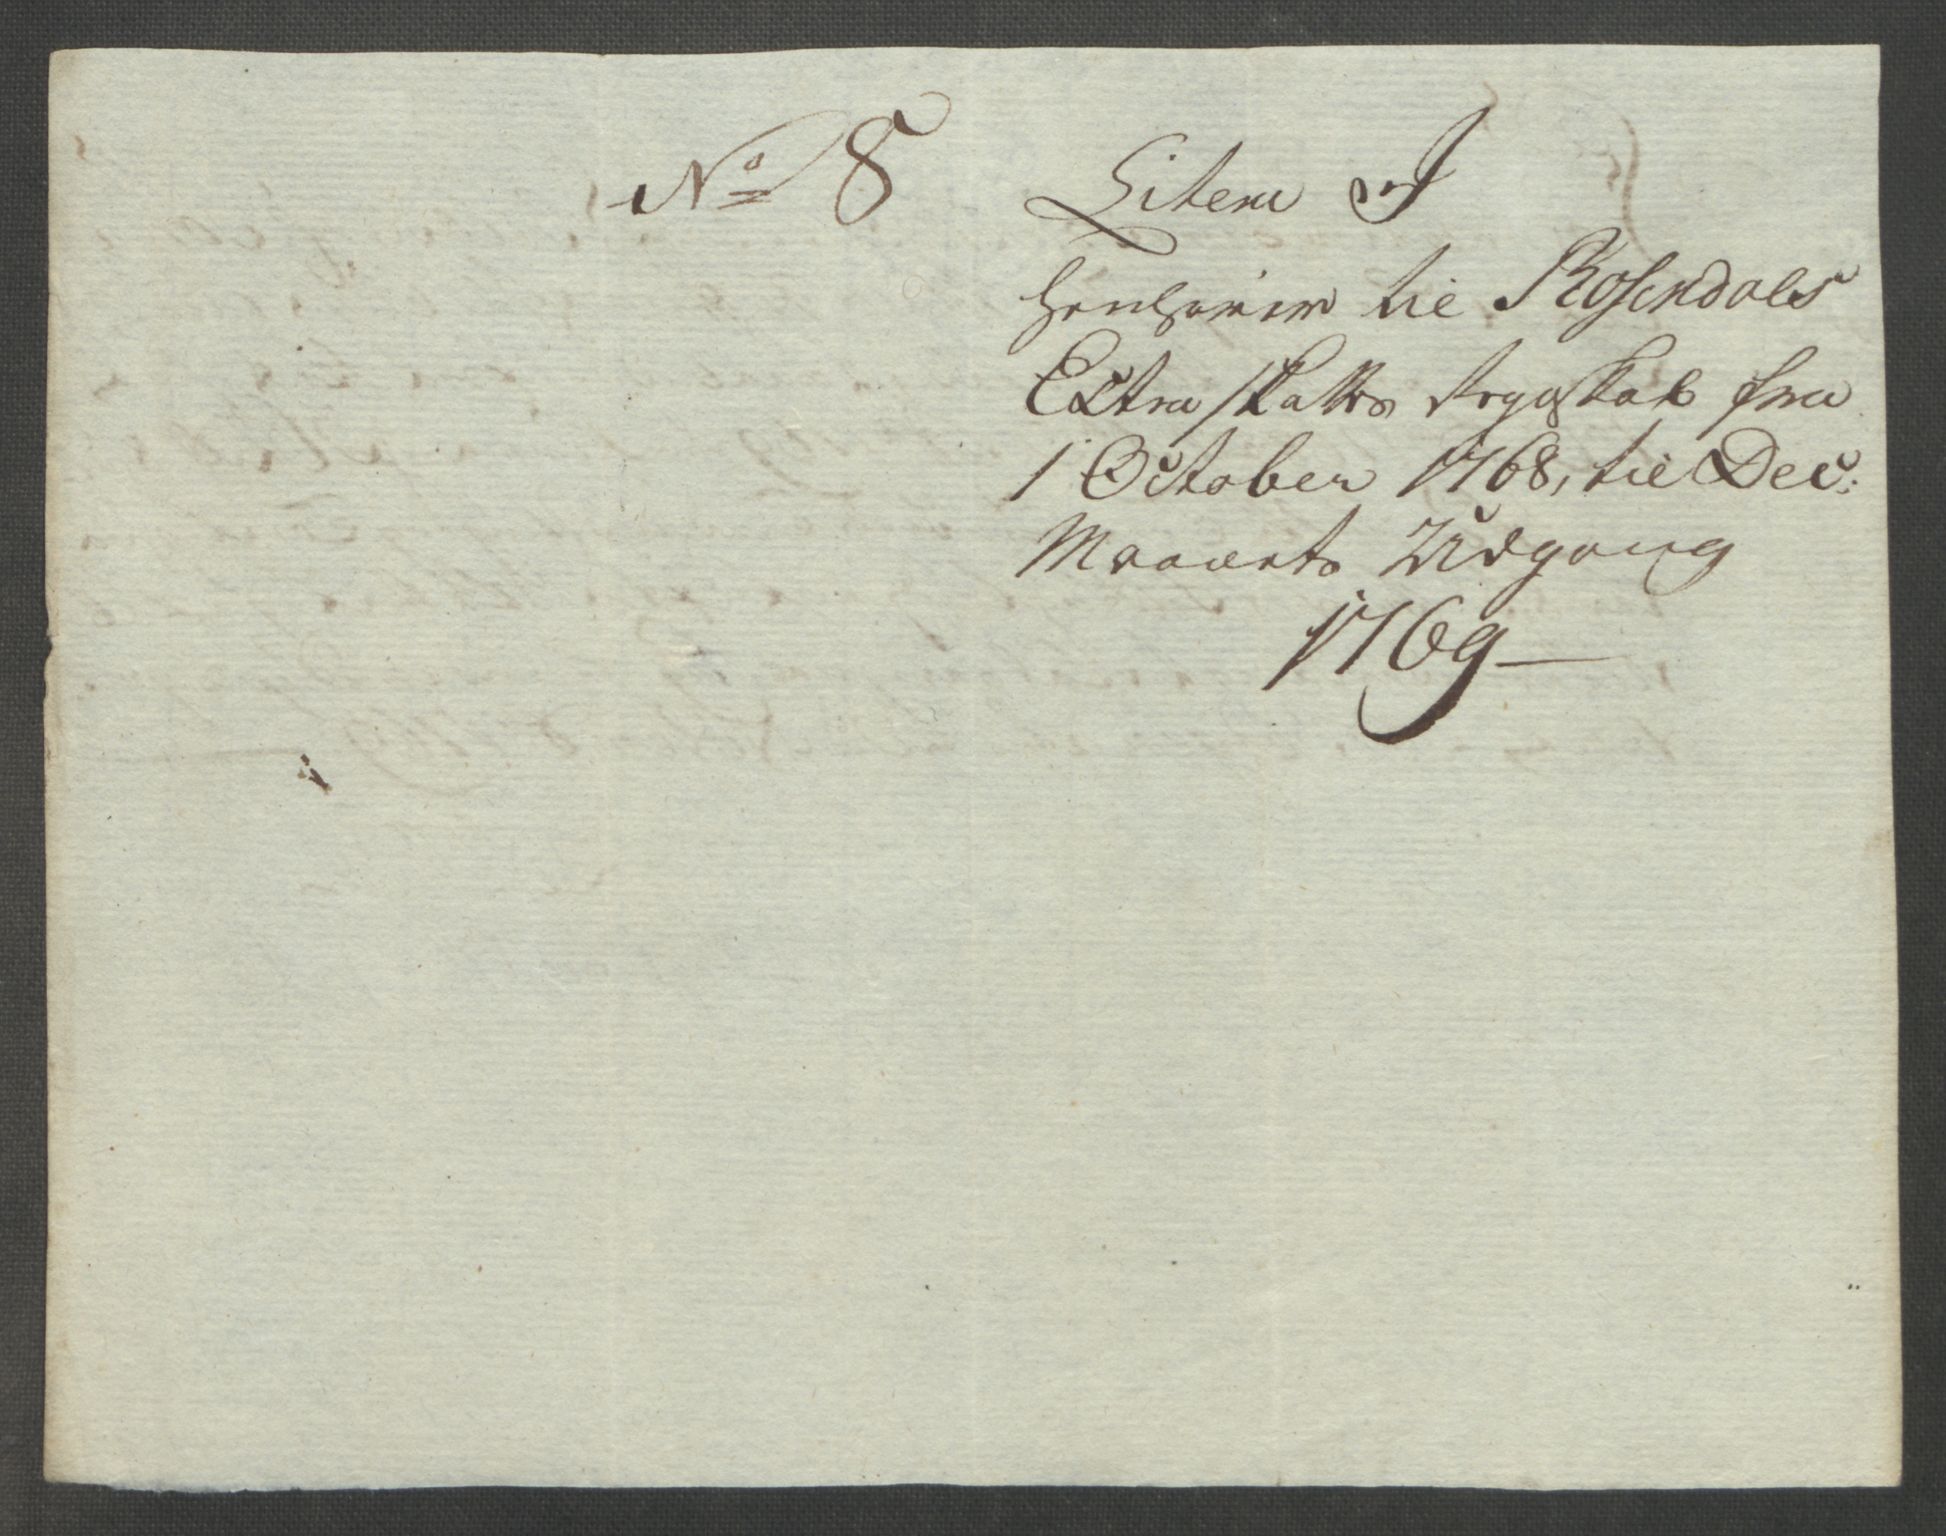 No 8
Litera J
henhörer til Rosendals
Extra skattes Regnskab fra
1 October 1768, til Dec:
Maanets Udgang
1769